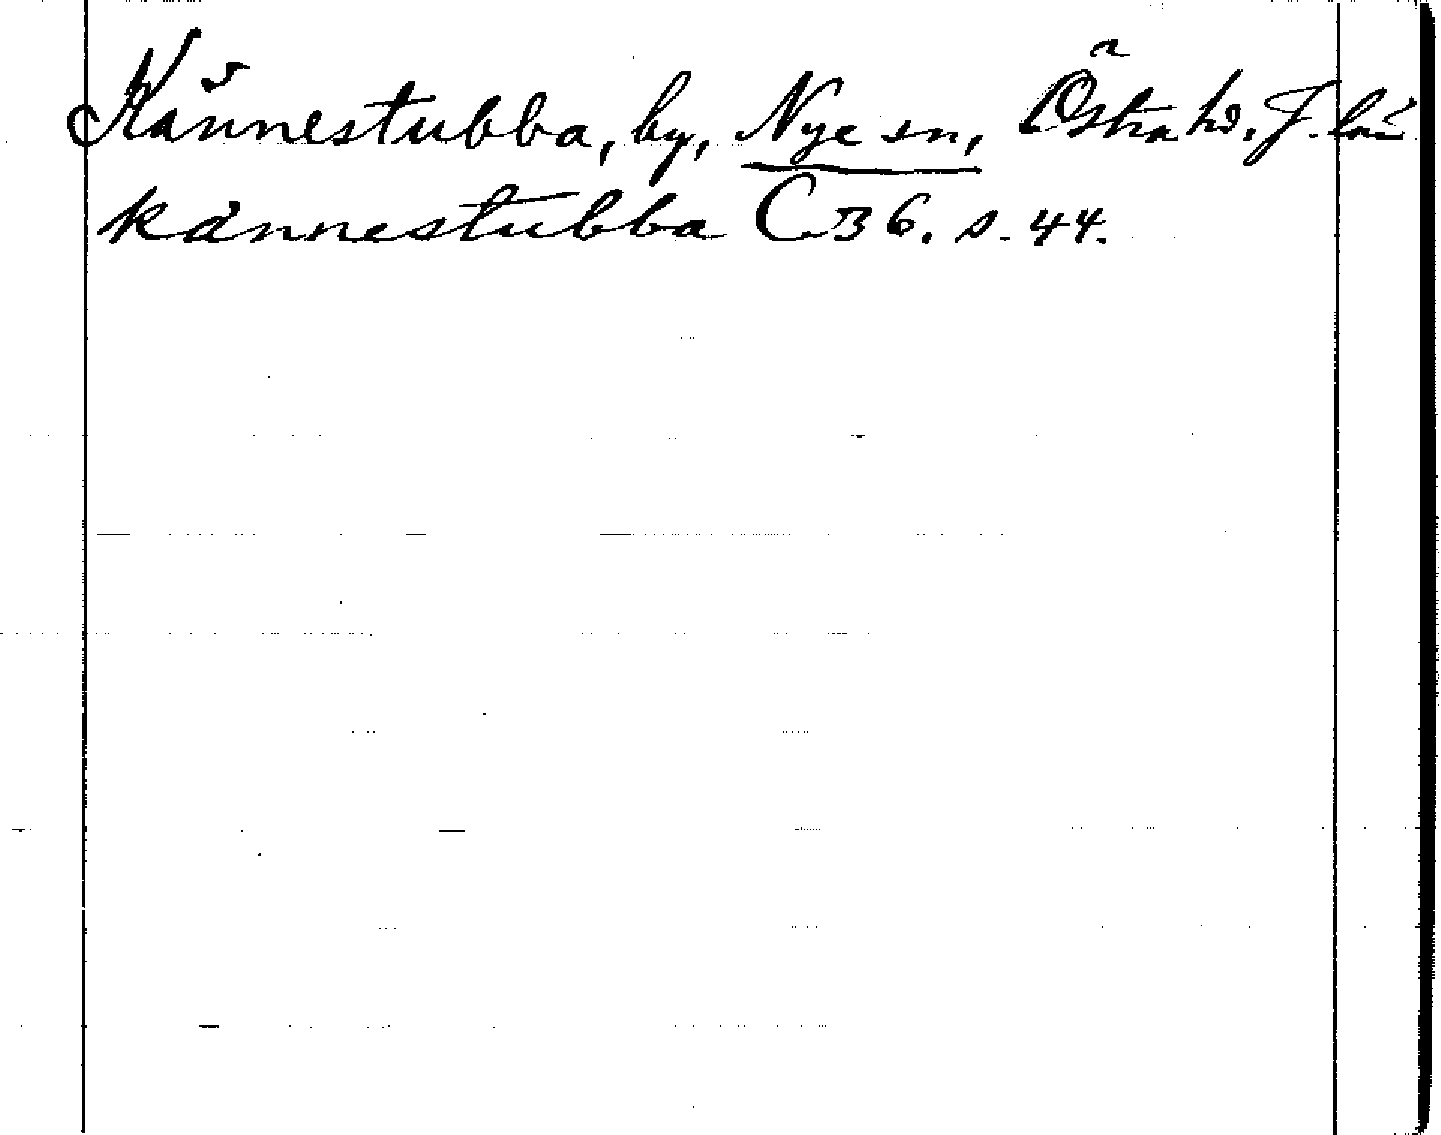 Kännestubba, by, Nye sn, Östra hd. J. län
kännestubba C36. s. 44.